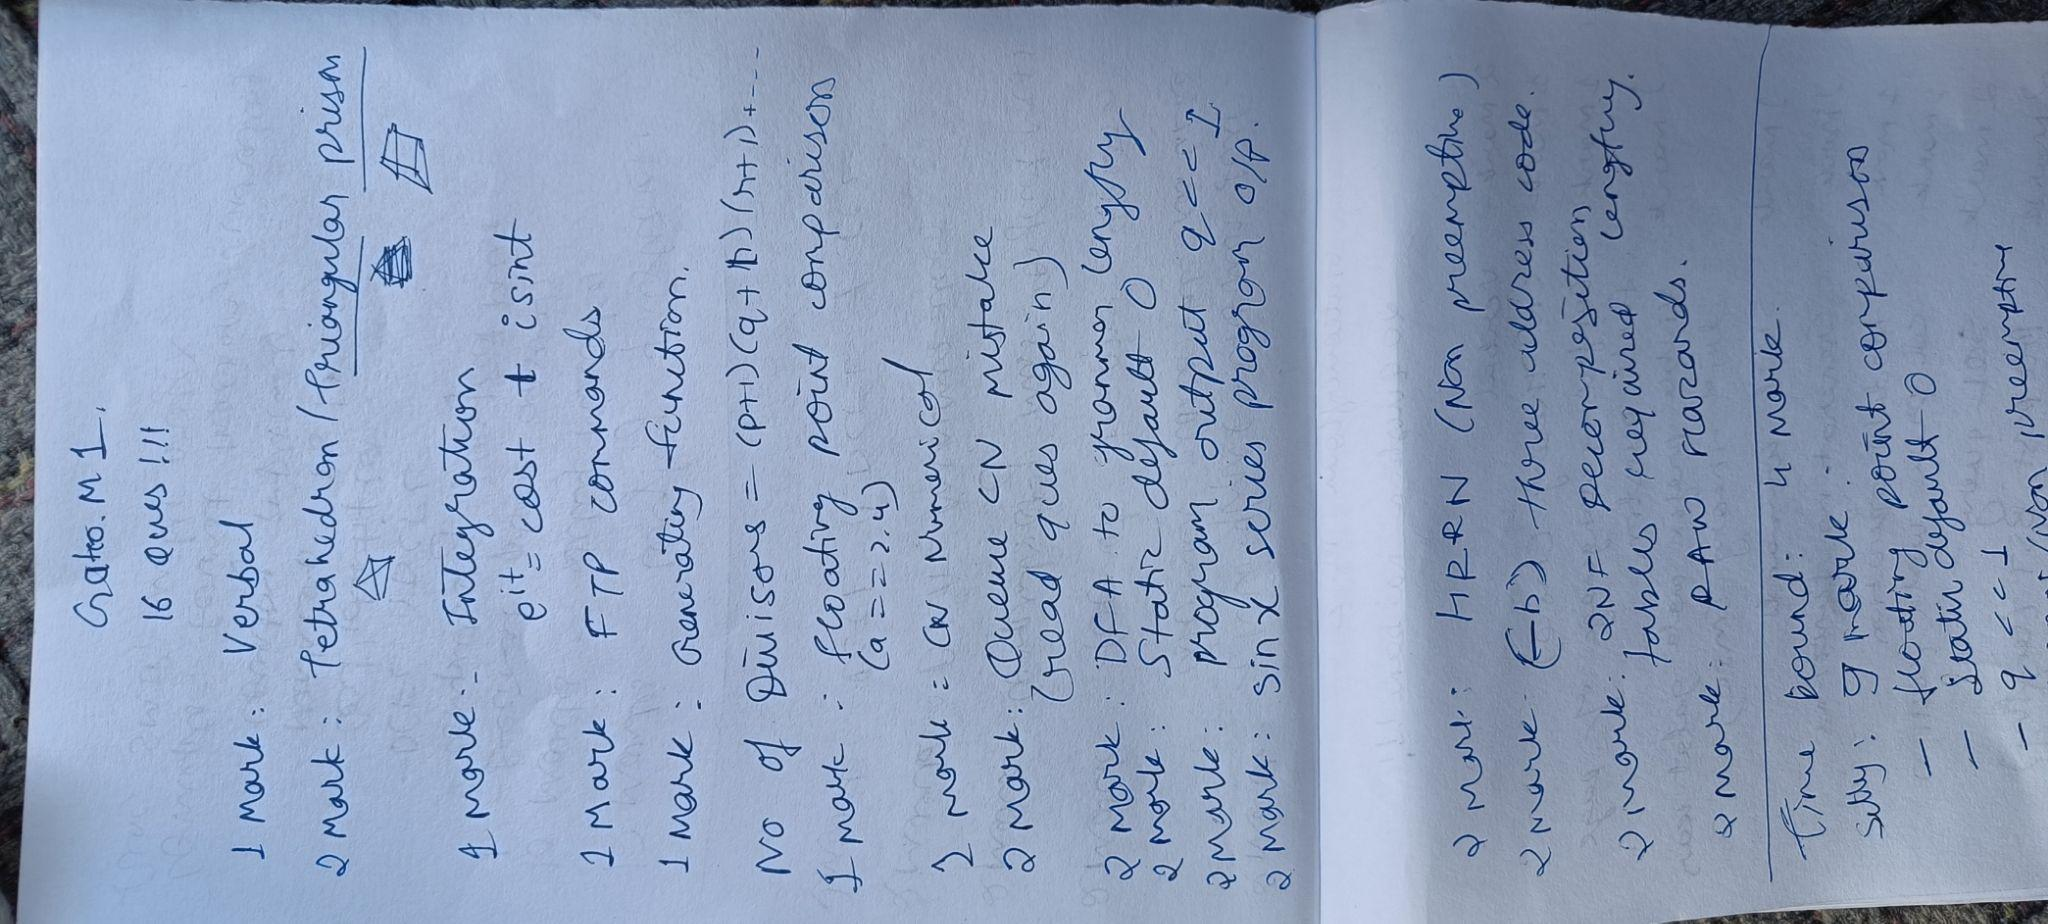 Gateo. M 1.
16 Ques !!!
1 Mark: Verbal
2 Mark: Tetrahedron / Triangular prism
1 Mark: Integration
e^it = cost + isint
1 Mark: FTP commands
1 Mark: Generating function.
No of Divisors = (p+1)(q+1)(r+1)+---
1 mark: floating point comparison
(a == 2.4)
1 mark: CN Numerical
2 mark: Queue CN mistake
(read ques again)
2 mark: DFA to grammer lengthy
2 mark: Static default 0
2 mark: program output q <<= 1
2 mark: sin x series program o/p.
2 Mark: HRRN (Non preemptive)
2 mark: (-b) three address code.
2 mark: 2NF Decomposition
tables required lengthy.
2 mark: RAW hazards.
Time bound: 4 mark.
Silly: 9 mark:
- floating point comparison
- Static default 0
- q <<= 1
(Non preemptive